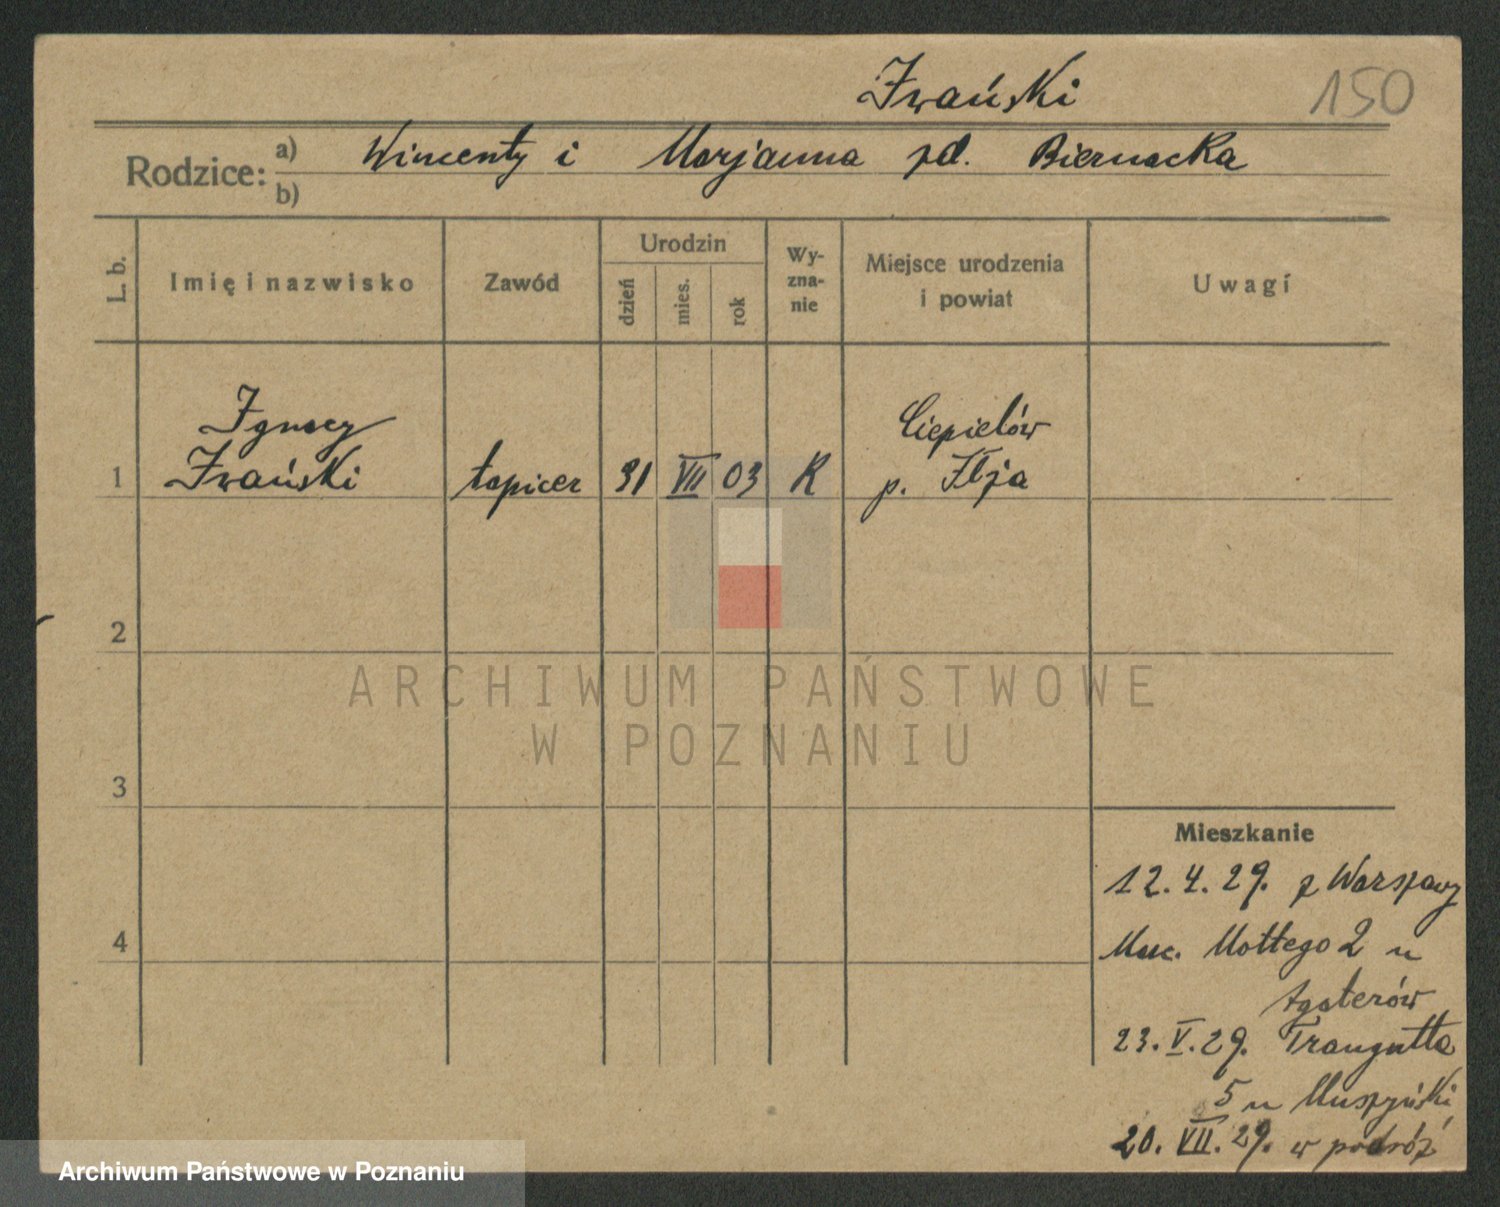 Iwański
150
Rodzice: a) Wincenty i Marjanna zd. Biernacka
b)
L. b.
Imię i nazwisko
Zawód
Urodzin
dzień
mies.
rok
Wy-
zna-
nie
Miejsce urodzenia
i powiat
Uwagi
1
Ignacy
Iwański
tapicer
31
VII
03
R
Ciepielów
p. Iłża
2
3
4
Mieszkanie
12.4.29. z Warszawy
Mottego 2 u
23.V.29. Traugutta
5 u Muszyński
20.VII.29. w podróż
ARCHIWUM PAŃSTWOWE
W POZNANIU
Archiwum Państwowe w Poznaniu